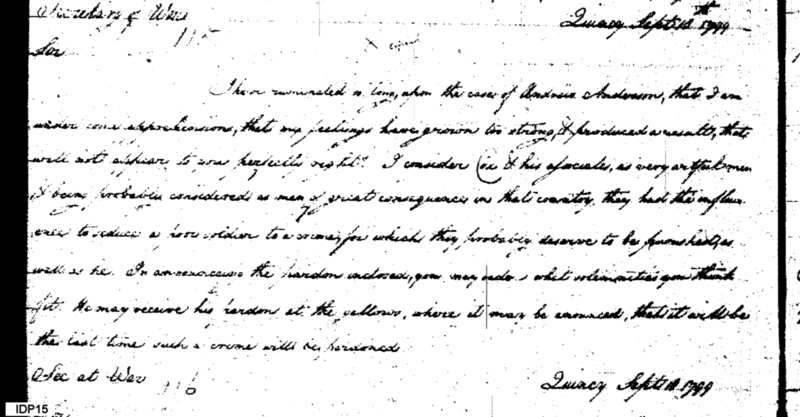 Secretary of War
Quincy Sept. 18th 1799
115
copied
Sir
I have ruminated so long, upon the case of Andrew Anderson, that I am
under some apprehensions, that my feelings have grown too strong, & produced a result, that
will not appear to you perfectly right. I consider Cox & his associates, as very artful men
& being probably considered as men of great consequence in that country, they had the influ
ence to seduce a poor soldier to a crime, for which they probably deserve to be punished, as
well as he. In announcing the pardon inclosed, you may make what solemnities you think
fit. He may receive his pardon at the gallows, where it may be announced, that it will be
the last time such a crime will be pardoned
Sec at War
116
Quincy Sept 18 1799
IDP15